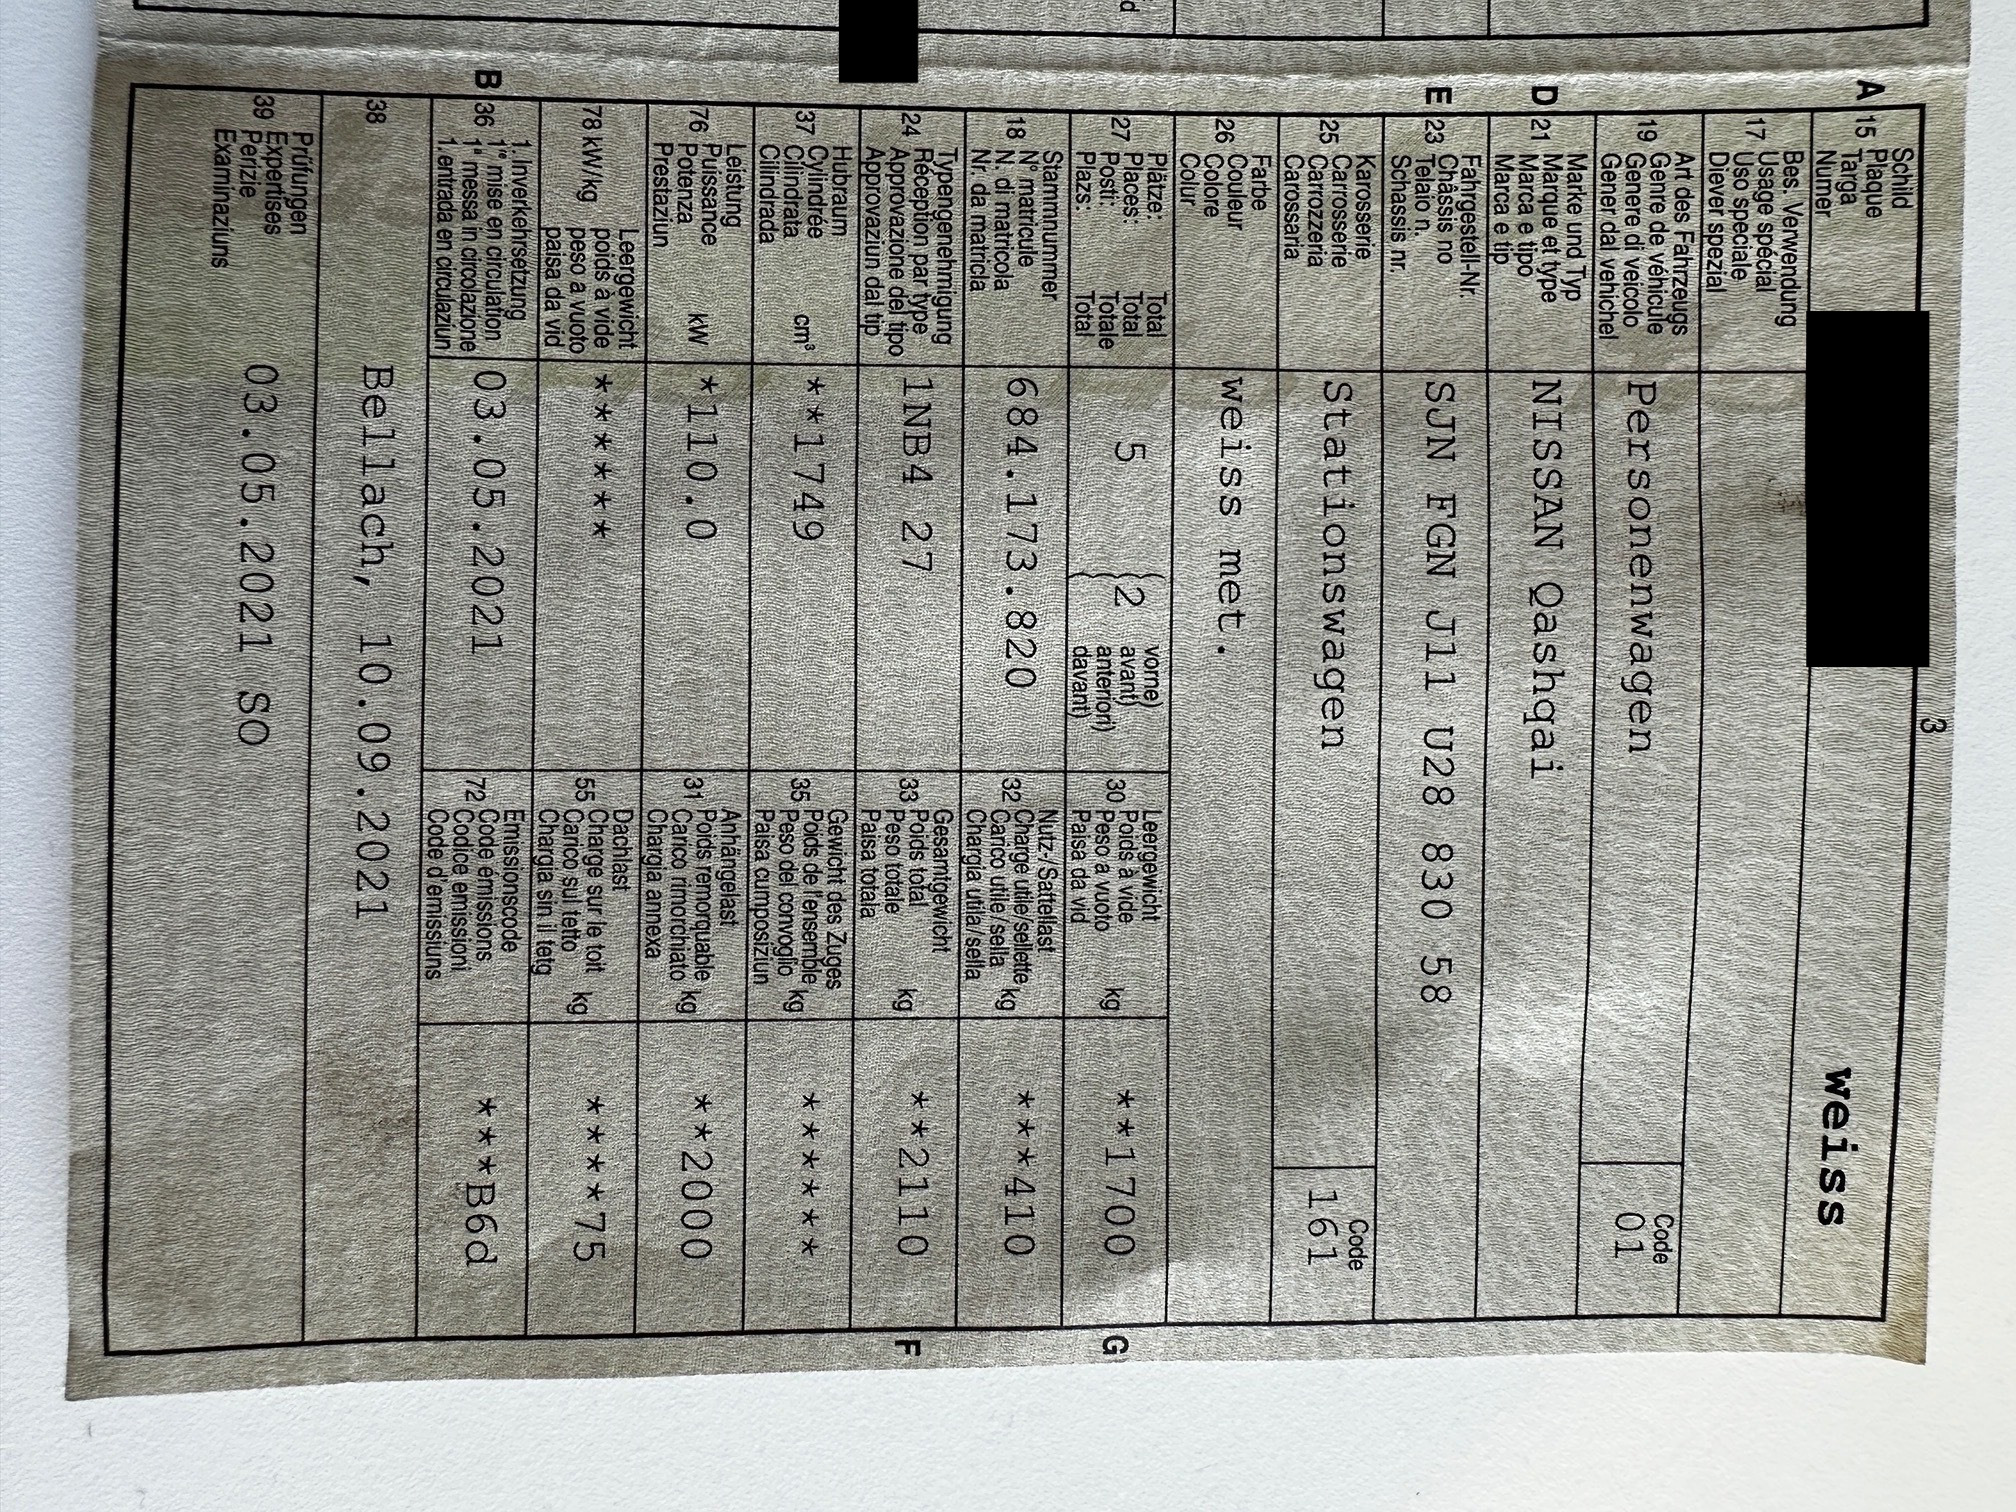 3
A 15 Schild
Plaque
Targa
Numer
weiss
17 Bes. Verwendung
Usage spécial
Uso speciale
Diever spezial
19 Art des Fahrzeugs
Genre de véhicule
Genere di veicolo
Gener dal vehichel
Personenwagen
Code
01
D 21 Marke und Typ
Marque et type
Marca e tipo
Marca e tip
NISSAN Qashqai
E 23 Fahrgestell-Nr.
Châssis no
Telaio n.
Schassis nr.
SJN FGN J11 U28 830 58
25 Karosserie
Carrosserie
Carrozzeria
Carossaria
Stationswagen
Code
161
26 Farbe
Couleur
Colore
Colur
weiss met.
27 Plätze: Total
Places: Total
Posti: Totale
Plazs: Total
5 (2 vorne)
avant)
anteriori)
davant)
30 Leergewicht
Poids à vide
Peso a vuoto kg
Paisa da vid
**1700
G
18 Stammnummer
N° matricule
N. di matricola
Nr. da matricla
684.173.820
32 Nutz-/Sattellast
Charge utile/sellette
Carico utile/sella kg
Chargia utila/sella
***410
24 Typengenehmigung
Réception par type
Approvazione del tipo
Approvaziun dal tip
1NB4 27
33 Gesamtgewicht
Poids total
Peso totale kg
Paisa totala
**2110
F
37 Hubraum
Cylindrée
Cilindrata cm³
Cilindrada
**1749
35 Gewicht des Zuges
Poids de l'ensemble
Peso del convoglio kg
Paisa cumposiziun
******
76 Leistung
Puissance
Potenza kW
Prestaziun
*110.0
31 Anhängelast
Poids remorquable
Carico rimorchiato kg
Chargia annexa
**2000
78 kW/kg Leergewicht
poids à vide
peso a vuoto
paisa da vid
******
55 Dachlast
Charge sur le toit
Carico sul tetto kg
Chargia sin il tetg
****75
B 36 1. Inverkehrsetzung
1re mise en circulation
1a messa in circolazione
1. entrada en circulaziun
03.05.2021
72 Emissionscode
Code émissions
Codice emissioni
Code d'emissiuns
***B6d
38
Bellach, 10.09.2021
39 Prüfungen
Expertises
Perizie
Examinaziuns
03.05.2021 SO